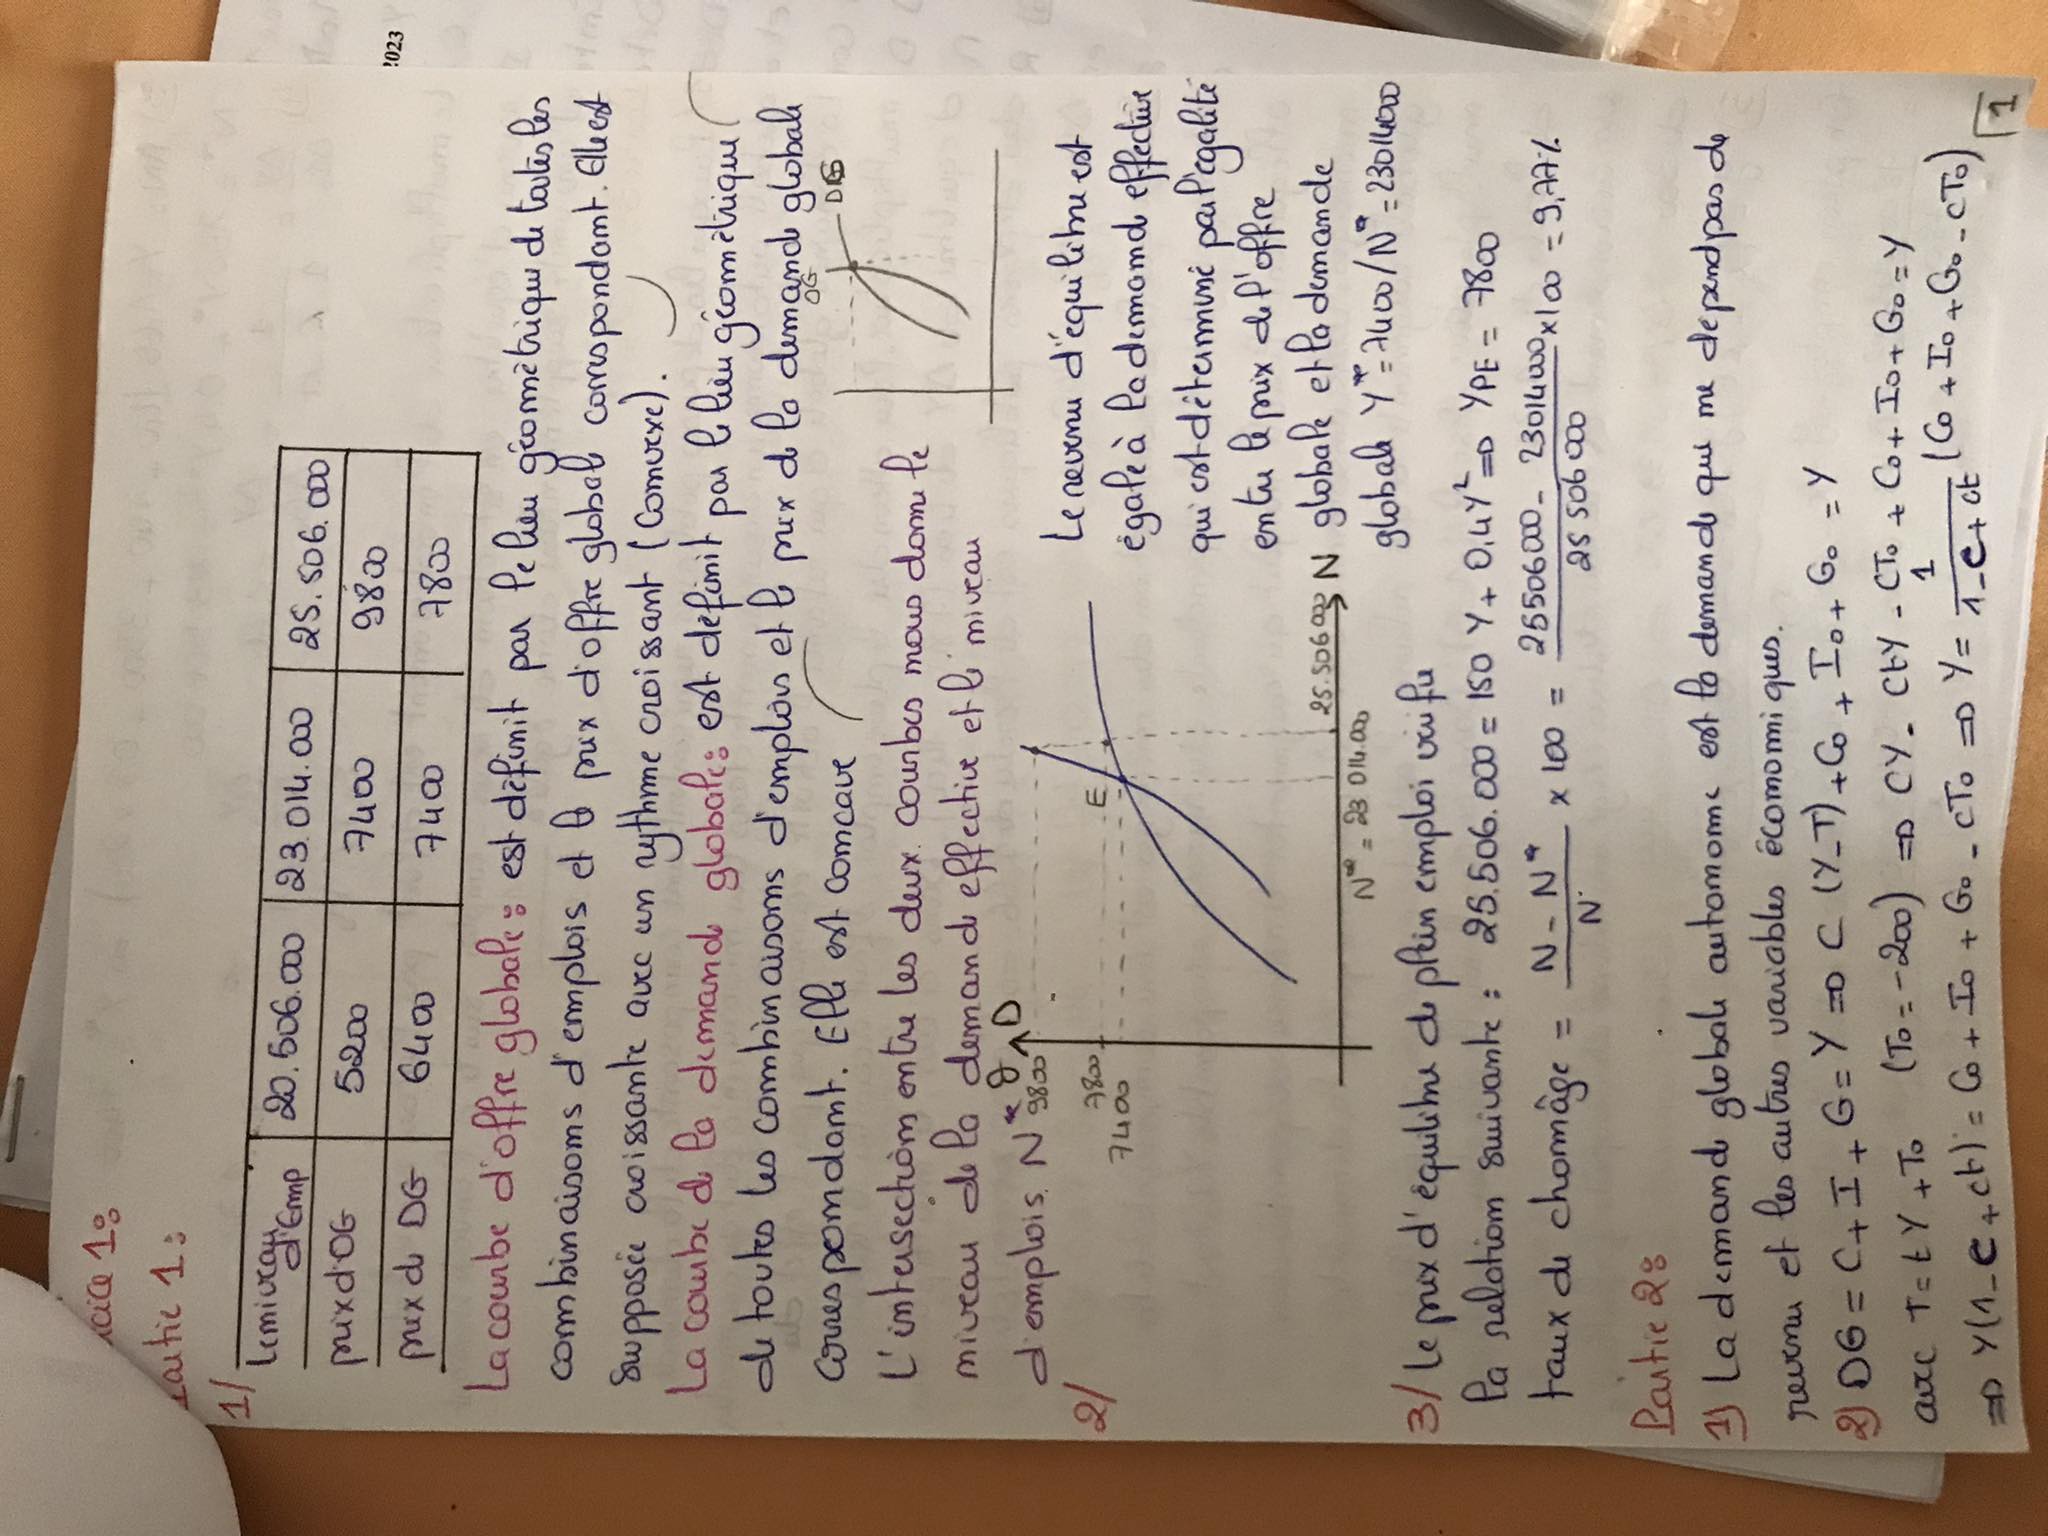 cice 1:
Partie 1:
1/
Le niveau d'Emp | 20.506.000 | 23.014.000 | 25.506.000
prix d'OG | 5200 | 7400 | 9800
prix de DG | 6400 | 7400 | 7800
2023
La courbe d'offre globale: est définit par le lieu géomètrique de toutes les
combinaisons d'emplois et le prix d'offre global correspondant. Elle est
Supposée croissante avec un rythme croissant (Convexe).
La courbe de la demande globale: est définit par le lieu géomètrique
de toutes les combinaisons d'emplois et le prix de la demande globale
correspondant. Elle est concave
OG
DG
L'intersection entre les deux courbes nous donne le
niveau de la demande effective et le niveau
d'emplois. N*
2/
O D
9800
7800
7400
E
25.506000 N
N* = 23 014.000
Le revenu d'équilibre est
égale à la demande effective
qui est déterminé par l'égalité
entre le prix de l'offre
globale et la demande
globale Y* = 7400 / N* = 23014000
3/ Le prix d'équilibre de plein emploi vérifie
la relation suivante : 25.506.000 = 150 Y + 0,4Y² => YPE = 7800
taux de chomâge = (N - N*)/N × 100 = (25506000 - 23014000)/25 506 000 ×100 = 9,77%
Partie 2:
1) La demande globale autonome est la demande qui ne dépend pas de
revenu et les autres variables économiques.
2) DG = C + I + G = Y => C (Y-T) + C0 + I0 + G0 = Y
avec T = tY + T0 (T0 = -200) => CY - CtY - CT0 + C0 + I0 + G0 = Y
=> Y(1 - c + ct) = C0 + I0 + G0 - cT0 => Y = 1/(1 - c + ct) (C0 + I0 + G0 - cT0)
1